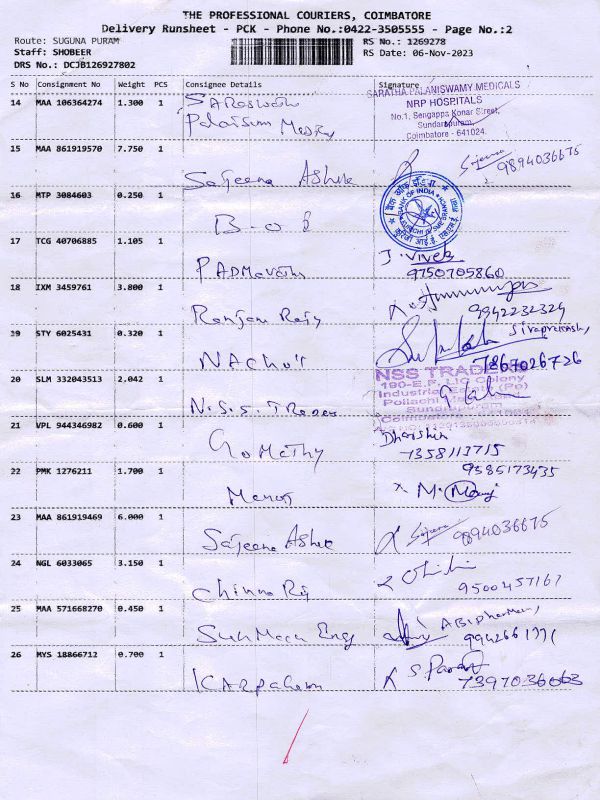 THE PROFESSIONAL COURIERS, COIMBATORE
Delivery Runsheet - PCK - Phone No.:0422-3505555 - Page No.:2
Route: SUGUNA PURAM
RS No.: 1269278
Staff: SHOBEER
RS Date: 06-Nov-2023
DRS No.: DCJB126927802
S No Consignment No Weight PCS Consignee Details Signature
14 MAA 106364274 1.300 1
SARATHA PALANISWAMY MEDICALS
NRP HOSPITALS
No.1, Sengappa Konar Street,
Sundarapuram,
Coimbatore - 641024.
15 MAA 861919570 7.750 1 Sajeena Ashik
Sajeena 9894036675
16 MTP 3084603 0.250 1 B-O I
BANK OF INDIA
17 TCG 40706885 1.105 1 PADMavathi
J. Vivek
9750705860
18 IXM 3459761 3.800 1
9942232324
19 STY 6025431 0.320 1
7867026726
20 SLM 332043513 2.042 1 N.S.S. Traders
NSS TRADERS
190-E.P. LIC Colony
Industrial Estate (Po)
Pollachi
21 VPL 944346982 0.600 1 GoMethy
Dharshin
1358113715
22 PMK 1276211 1.700 1 Manoj
9585173435
x M. Manoj
23 MAA 861919469 6.000 1 Sajeena Ashik
Sajeena 9894036675
24 NGL 6033065 3.150 1 Chinna Raj
9500457167
25 MAA 571668270 0.450 1 Sun Moon Eng
26 MYS 18866712 0.700 1 Karpaham
7397036063